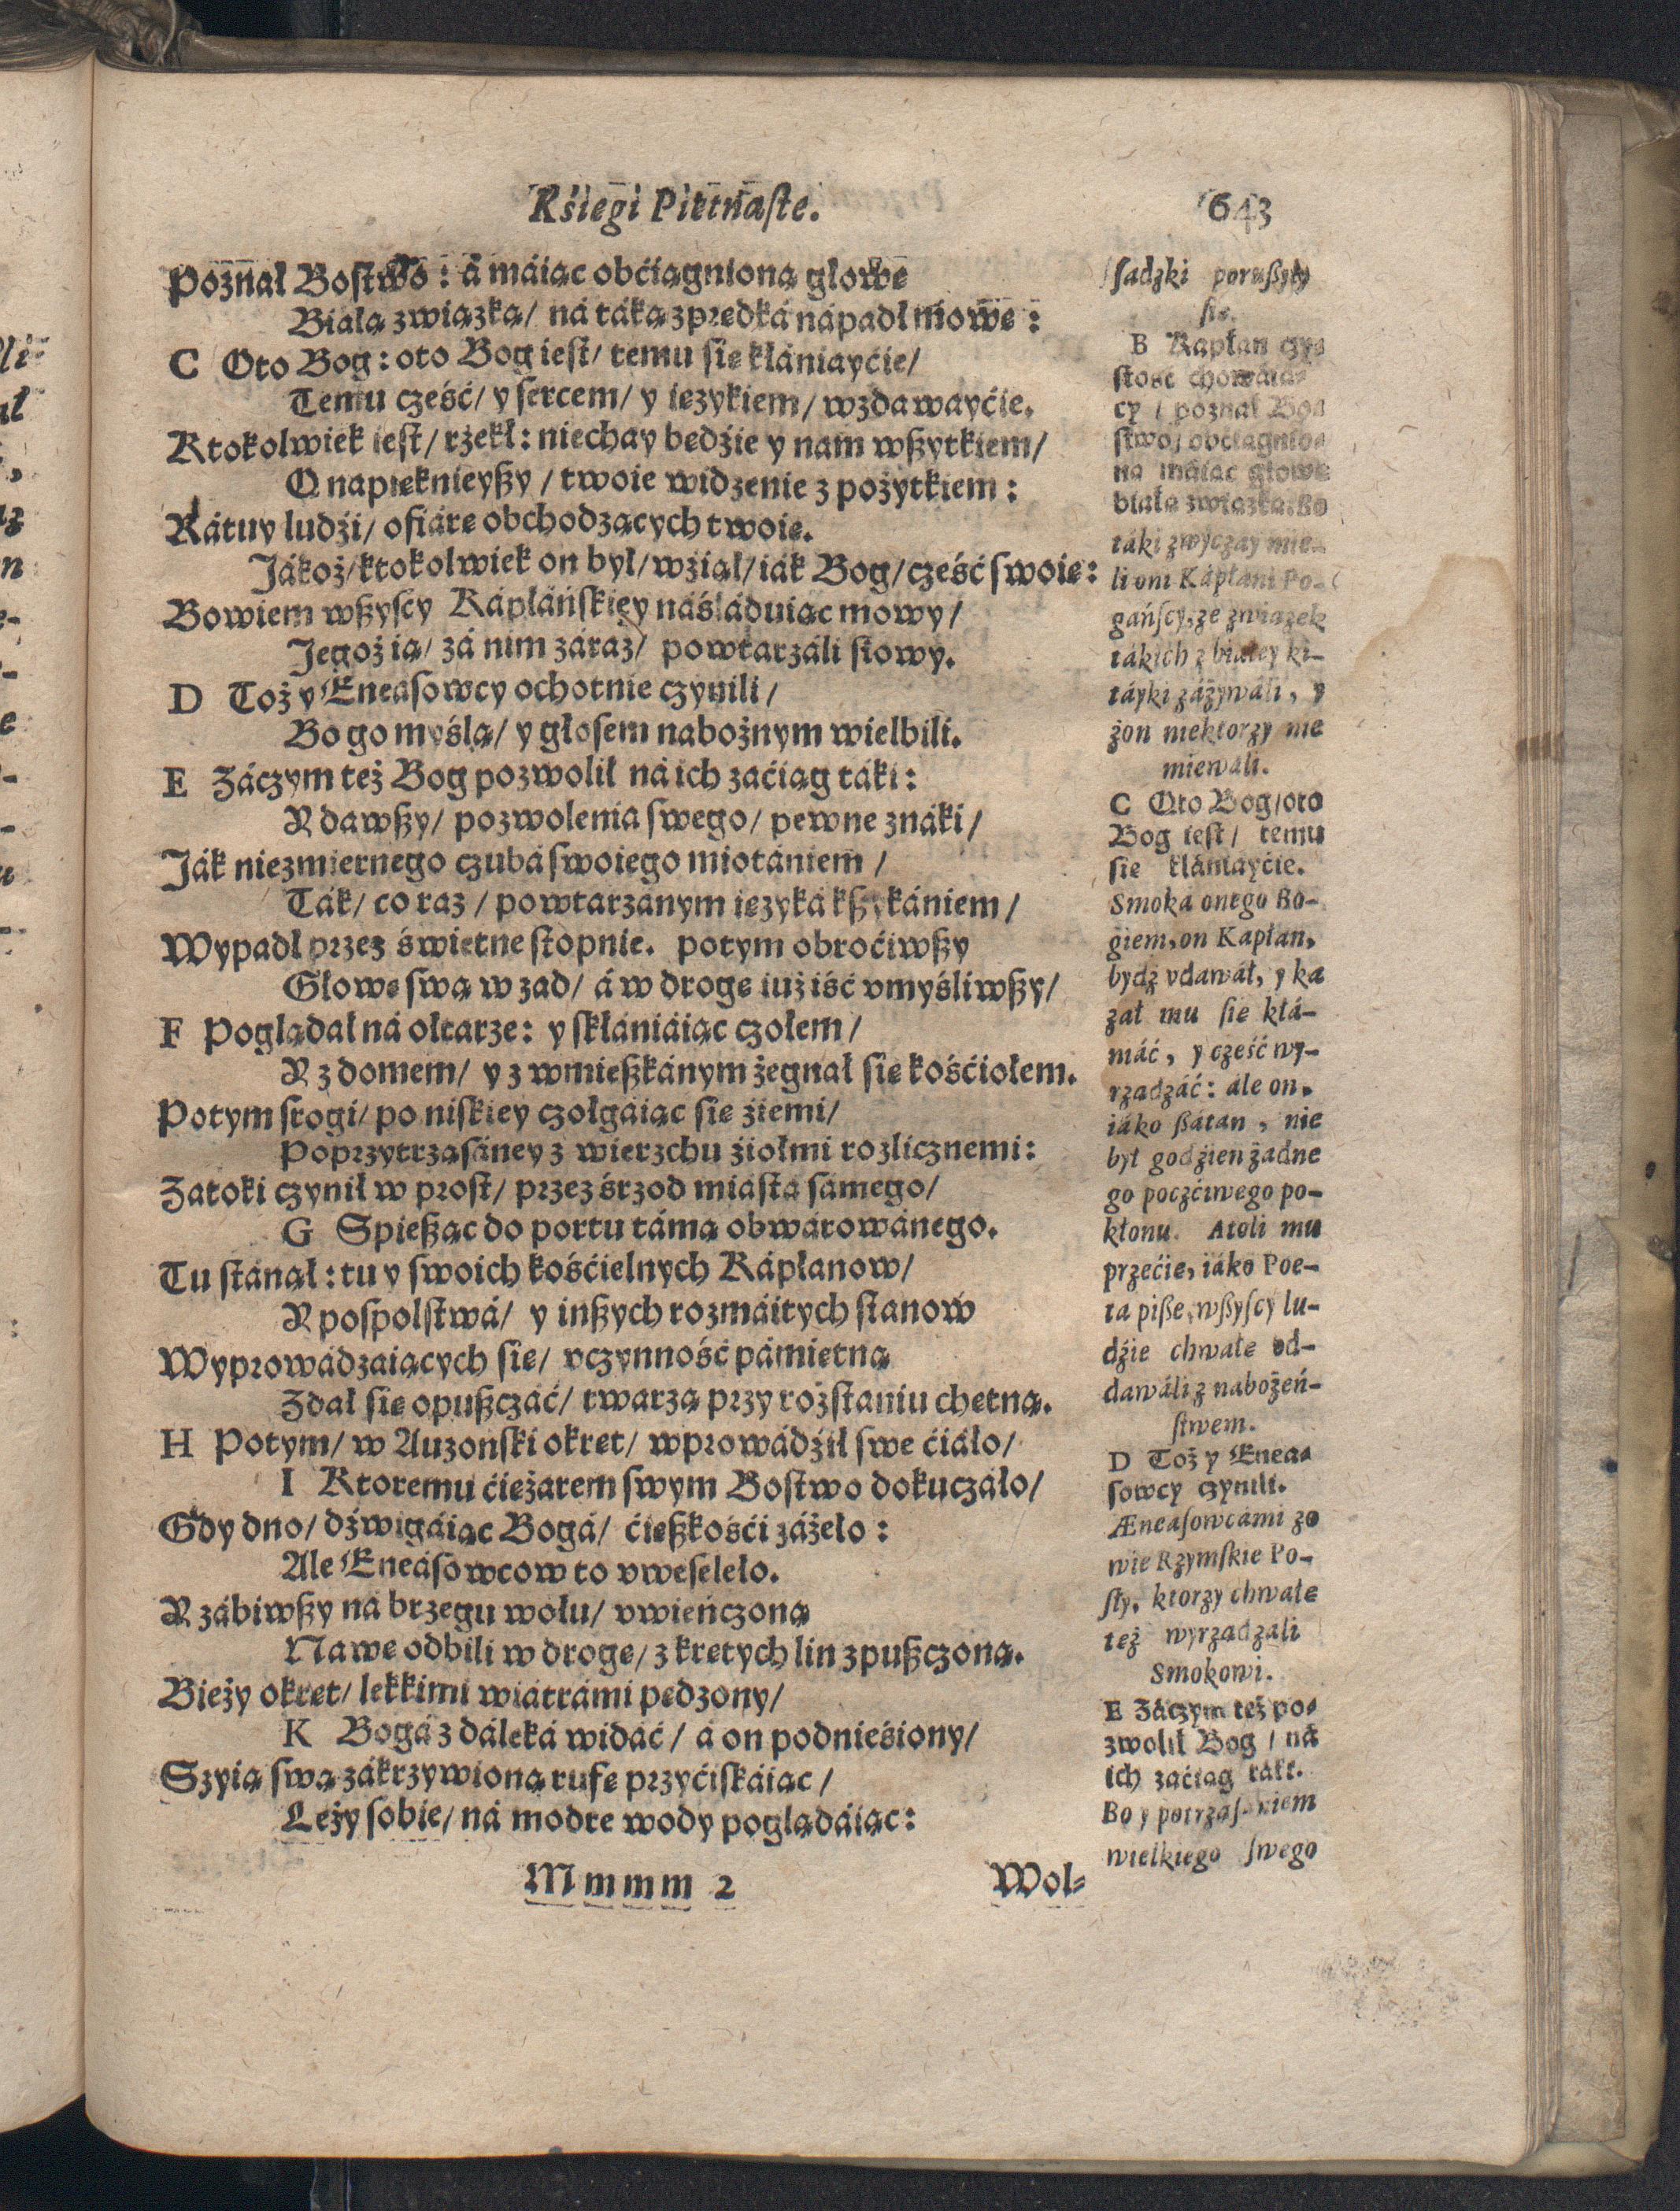 Kśięgi Piętnaſte. 643
Poznał Boſtwo: á máiąc obćiągnioną głowę
Białą zwiążką/ ná táką zprędká nápadł mowę:
C Oto Bog: oto Bog ieſt/ temu ſię kłániayćie/
Temu cześć/ y ſercem/ y ięzykiem/ wzdawayćie.
Ktokolwiek ieſt/ rzekł: niechay będźie y nam wßytkiem/
O napięknieyßy/ twoie widzenie z pożytkiem:
Rátuy ludźi/ ofiárę obchodzących twoię.
Jákoż/ ktokolwiek on był/ wźiął/ iák Bog/ cześć ſwoię:
Bowiem wßyſcy Kápłáńſkiey náśláduiąc mowy/
Jegoż ią/ zá nim záraz/ powtarzáli ſłowy.
D Toż y Eneaſowcy ochotnie czynili/
Bo go myślą/ y głoſem nabożnym wielbili.
E Záczym też Bog pozwolił ná ich zaćiąg táki:
Y dawßy/ pozwolenia ſwego/ pewne znáki/
Ják niezmiernego czubá ſwoiego miotániem/
Ták/ co raz/ powtarzánym ięzyká kßykániem/
Wypadł przez świetne ſtopnie. potym obroćiwßy
Głowę ſwą w zad/ á w drogę iuż iść vmyśliwßy/
F Poglądał ná ołtarze: y ſkłániáiąc czołem/
Y z domem/ y z wmießkánym żegnał ſię kośćiołem.
Potym ſrogi/ po niſkiey czołgáiąc ſię źiemi/
Poprzytrząſáney z wierzchu źiołmi rozlicznemi:
Zatoki czynił w proſt/ przez śrzod miáſtá ſámego/
G Spießąc do portu támą obwárowánego.
Tu ſtánął: tu y ſwoich kośćielnych Kápłanow/
Y poſpolſtwá/ y inßych rozmáitych ſtanow
Wyprowádzaiących ſię/ vczynność pámiętną
Zdał ſię opußczáć/ twarzą przy rozſtaniu chętną.
H Potym/ w Auzonſki okręt/ wprowádźił ſwe ćiáło/
I Ktoremu ćiężarem ſwym Boſtwo dokuczáło/
Gdy dno/ dźwigáiąc Bogá/ ćięßkośći záżęło:
Ale Eneáſowcow to vweſeleło.
Y zábiwßy ná brzegu wołu/ vwieńczoną
Nawę odbili w drogę/ z krętych lin zpußczoną.
Bieży okręt/ lekkimi wiátrámi pędzony/
K Bogá z dáleká widáć/ á on podnieśiony/
Szyią ſwą zákrzywioną rufę przyćiſkáiąc/
Leży ſobie/ ná modre wody poglądáiąc:
Mmmm 2 Wol⸗
ſadzki porußyły
ſię.
B Kapłan czy⸗
ſtość chowáią⸗
cy / poznał Bo⸗
ſtwo/ obćiągnio⸗
ną máiąc głowę
białą zwiążką. Bo
táki zwyczay mie-
li oni Kápłani Po-
gáńſcy, że związek
tákich z białey ki-
táyki záżywáli, y
żon niektorzy nie
miewáli.
C Oto Bog/ oto
Bog ieſt/ temu
ſię kłániayćie.
Smoká onego Bo-
giem, on Kapłan,
bydź vdawáł, y ka
zał mu ſię kłá-
niáć, y cześć wy-
rządzáć: ále on,
iáko ßátan, nie
był godźien żadne
go poczćiwego po-
kłonu. Atoli mu
przećie, iáko Poe-
ta piße, wßyſcy lu-
dźie chwałę od-
dawáli z nabożeń-
ſtwem.
D Toż y Enea⸗
ſowcy czynili.
Æneaſowcámi zo
wie Rzymſkie Po-
ſły, ktorzy chwałę
też wyrządzáli
Smokowi.
E Záczym też po⸗
zwolił Bog / ná
ich zaćiąg táki.
Bo y potrząſaniem
wielkiego ſwego